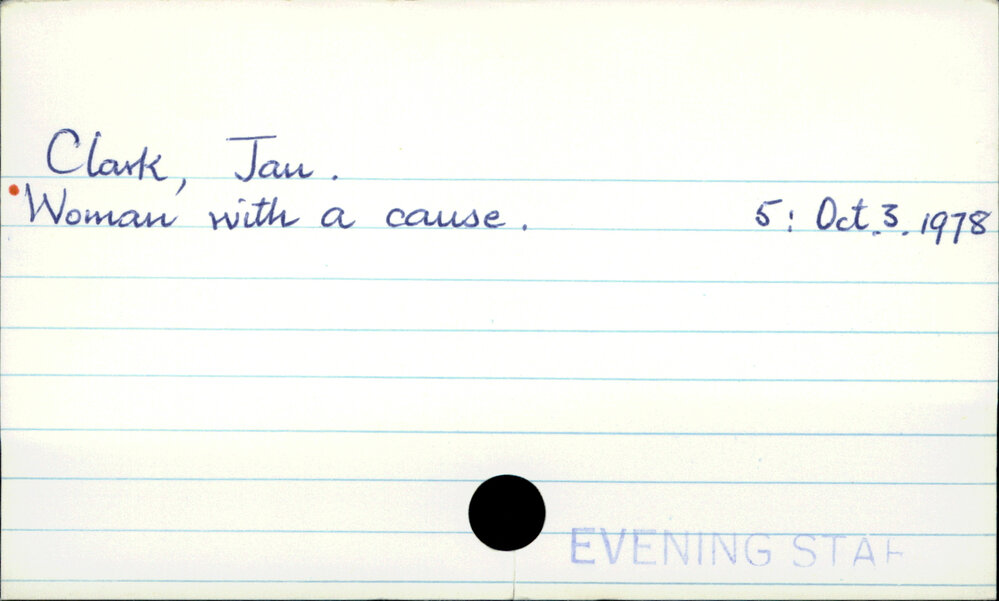 Clark, Jan.
Woman with a cause. 5: Oct. 3. 1978
EVENING STAR